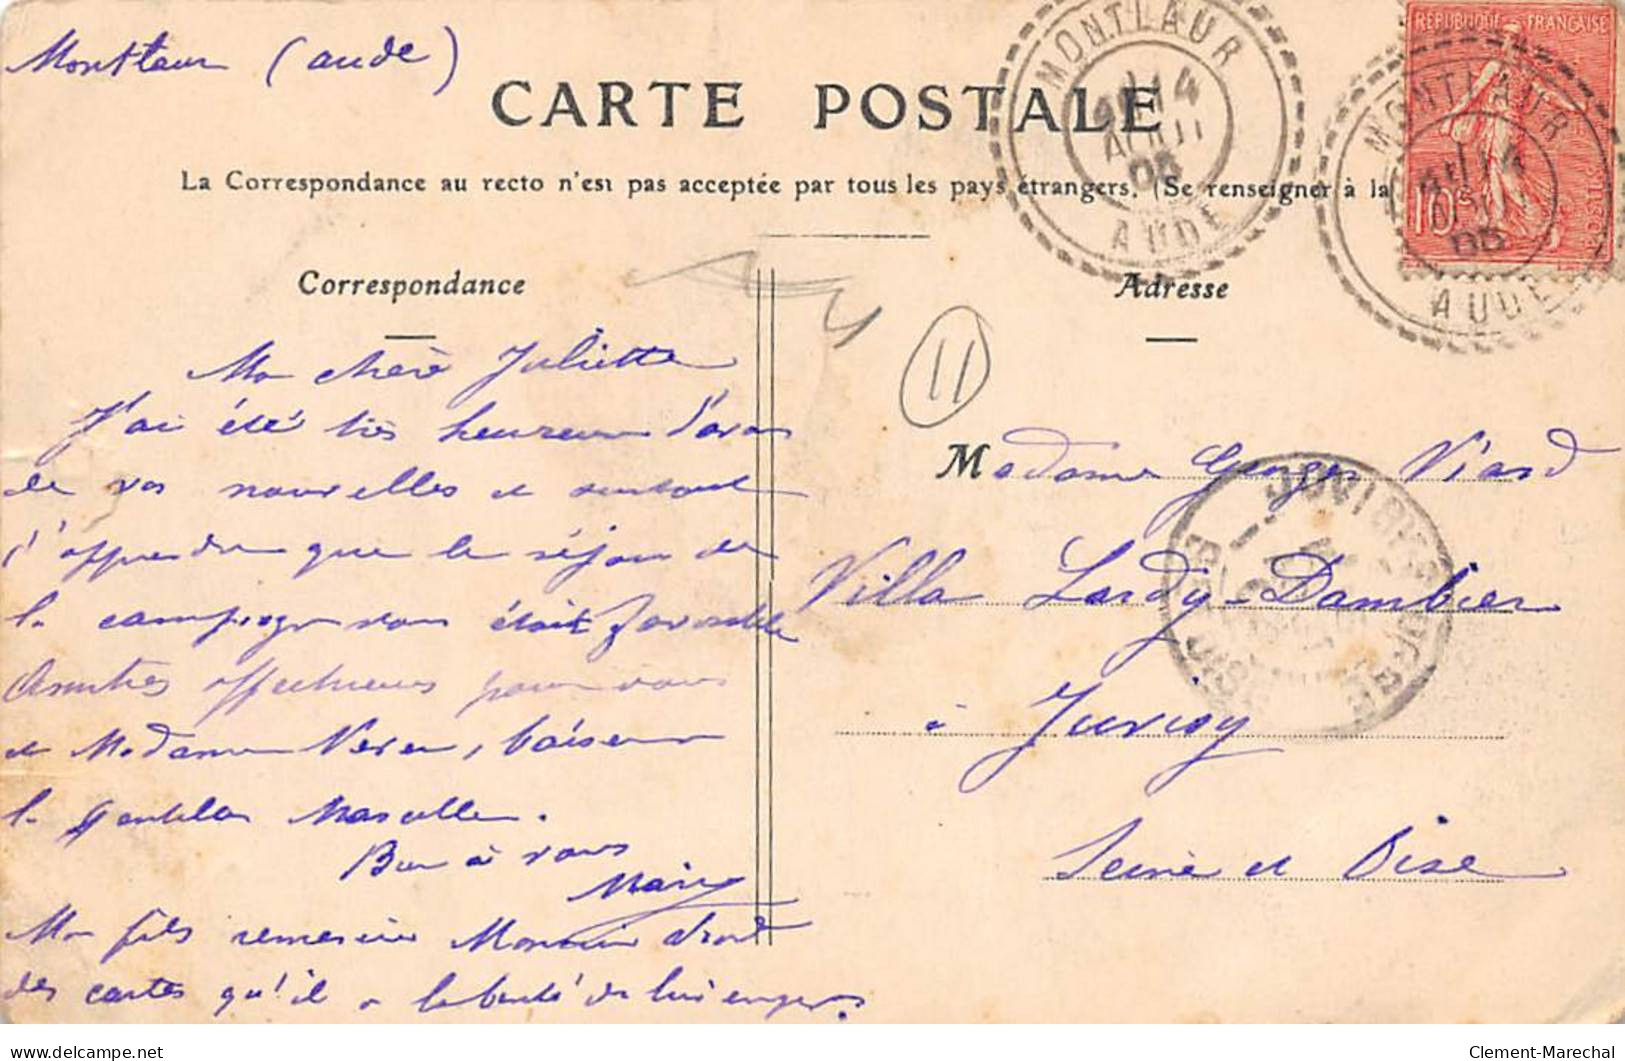 Montlaur (aude)
CARTE POSTALE
La Correspondance au recto n'est pas acceptée par tous les pays étrangers. (Se renseigner à la
MONTLAUR
14
AOUT
05
AUDE
RÉPUBLIQUE FRANÇAISE
10
MONTLAUR
14
AUDE
Correspondance
Ma chère Juliette
J'ai été très heureuse d'avoir
de vos nouvelles et surtout
d'apprendre que le séjour de
la campagne vous était favorable
Amitiés affectueuses pour vous
et Madame Veren, baisers
la gentille Marcelle.
Bien à vous
Mary
Mon fils remercie Monsieur
des cartes qu'il a la bonté de lui envoyer.
11
Adresse
Madame Georges Viard
Villa Lardy-Dambier
à Juvisy
Seine et Oise
JUVISY
Clement-Marechal